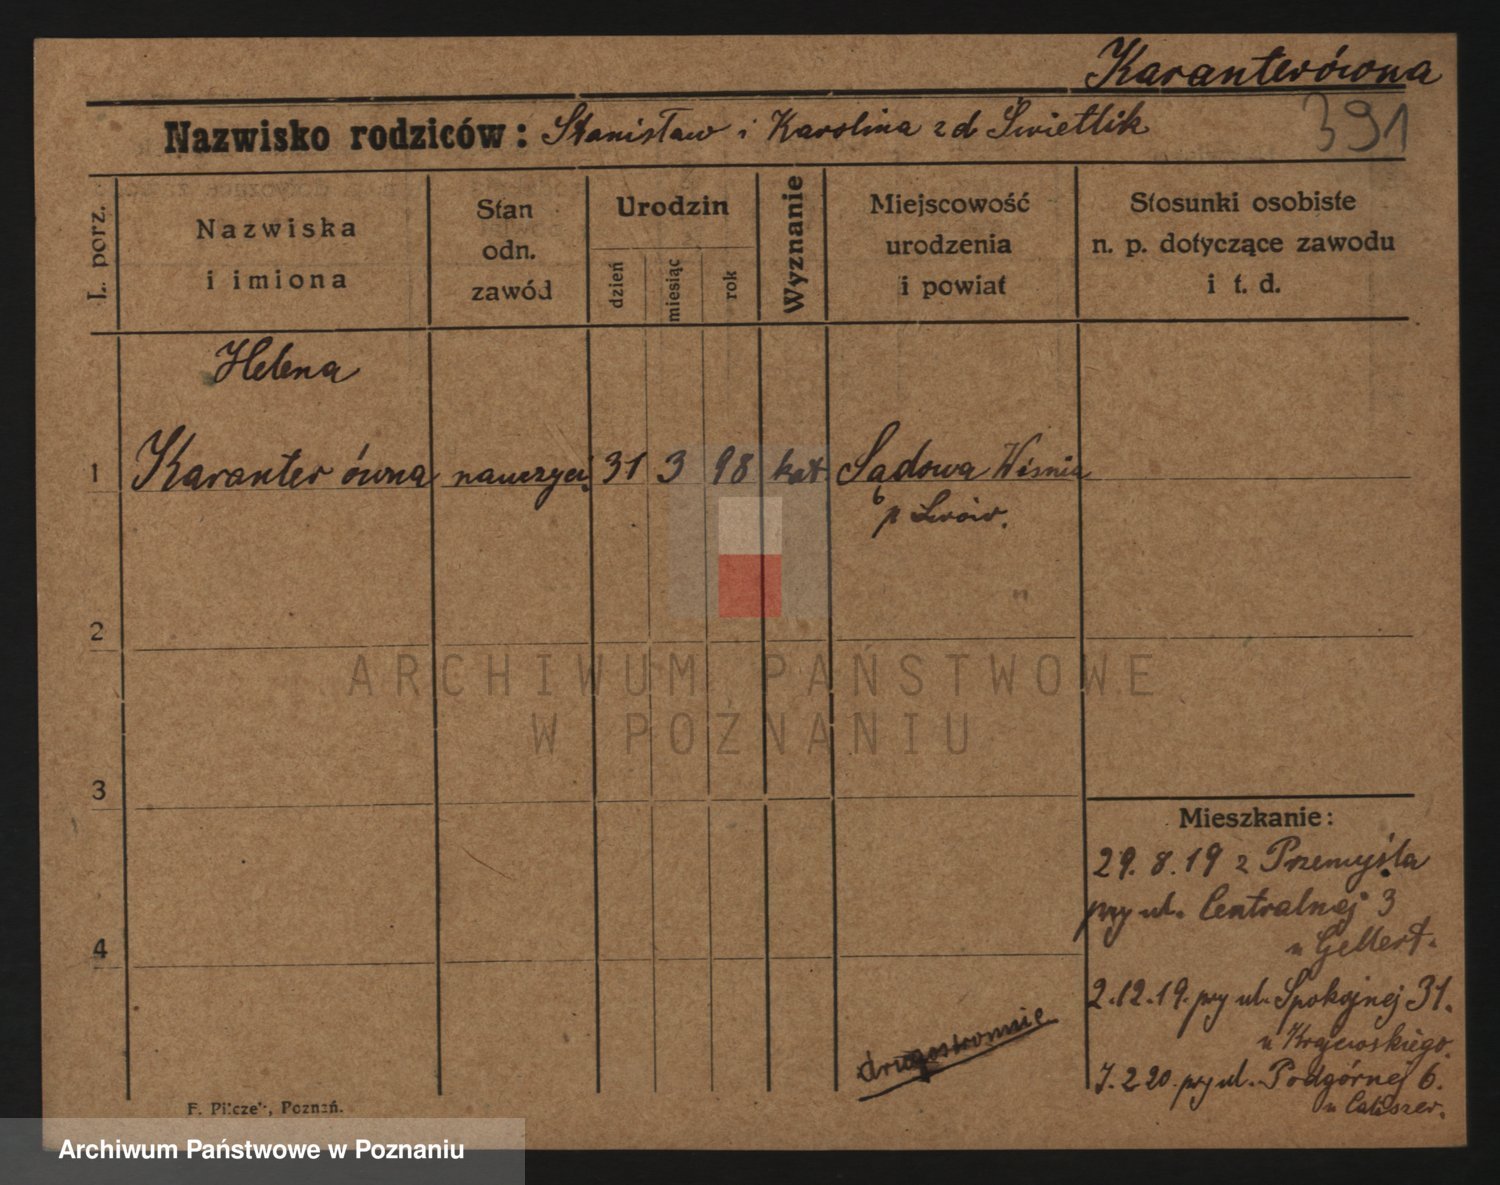 Karanterówna
391
Nazwisko rodziców: Stanisław i Karolina z d Świetlik
L. porz.
Nazwiska
i imiona
Stan
odn.
zawód
Urodzin
dzień
miesiąc
rok
Wyznanie
Miejscowość
urodzenia
i powiat
Stosunki osobiste
n. p. dotyczące zawodu
i t. d.
Helena
1 Karanterówna nauczyci. 31 3 98 kat Sądowa Wisnia
p Lwów.
2
ARCHIWUM PAŃSTWOWE
W POZNANIU
3
Mieszkanie:
29.8.19 z Przemyśla
przy ul. Centralnej 3
u Gellert.
4
2.12.19. przy ul. Spokojnej 31.
u Krajewskiego.
drugostronnie
7.2 20. przy ul. Podgórnej 6.
u
F. Pilczek, Poznań.
Archiwum Państwowe w Poznaniu